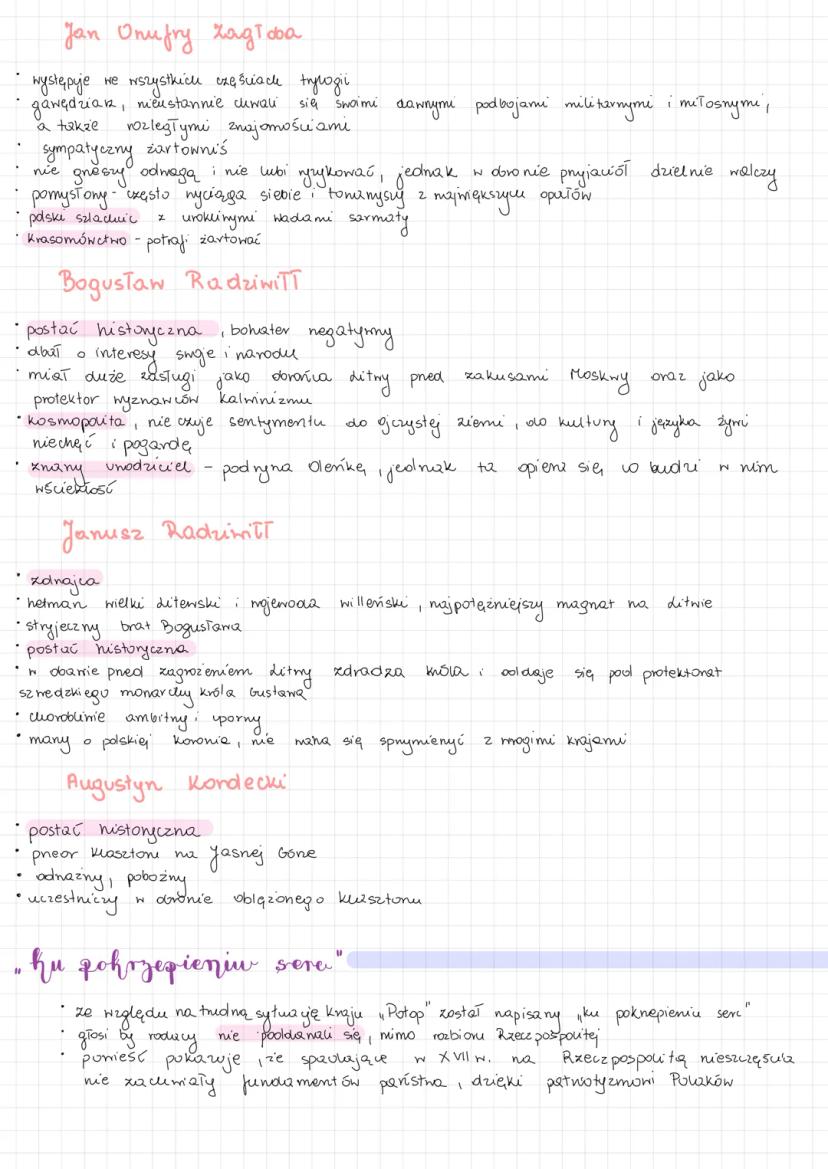 Jan Onufry Zagłoba
• występuje we wszystkich częściach trylogii
• gawędziarz, nieustannie chwali się swoimi dawnymi podbojami militarnymi i miłosnymi,
a także rozległymi znajomościami
• sympatyczny żartowniś
• nie grzeszy odwagą i nie lubi ryzykować, jednak w obronie przyjaciół dzielnie walczy
• pomysłowy - często wyciąga siebie i towarzyszy z największych opałów
• polski szlachcic z urokliwymi wadami sarmaty
• krasomówstwo - potrafi żartować
Bogusław Radziwiłł
• postać historyczna, bohater negatywny
• dbał o interesy swoje i narodu
• miał duże zasługi jako obrońca Litwy przed zakusami Moskwy oraz jako
protektor wyznawców kalwinizmu
• kosmopolita, nie czuje sentymentu do ojczystej ziemi, do kultury i języka żywi
niechęć i pogardę
• znany uwodziciel - podrywa Oleńkę, jednak ta opiera się co budzi w nim
wściekłość
Janusz Radziwiłł
• zdrajca
• hetman wielki litewski i wojewoda wileński, najpotężniejszy magnat na Litwie
• stryjeczny brat Bogusława
• postać historyczna
• w obawie przed zagrożeniem Litwy zdradza króla i oddaje się pod protektorat
szwedzkiego monarchy króla Gustawa
• chorobliwie ambitny i uporny
• marzy o polskiej koronie, nie waha się sprzymierzyć z wrogimi krajami
Augustyn Kordecki
• postać historyczna
• przeor klasztoru na Jasnej Górze
• odważny, pobożny
• uczestniczy w obronie oblężonego klasztoru
„Ku pokrzepieniu serc"
• ze względu na trudną sytuację kraju „Potop" został napisany „ku pokrzepieniu serc"
• głosi by rodacy nie poddawali się, mimo rozbioru Rzeczpospolitej
• powieść pokazuje, że spadające w XVII w. na Rzeczpospolitą nieszczęścia
nie zachwiały fundamentów państwa, dzięki patriotyzmowi Polaków